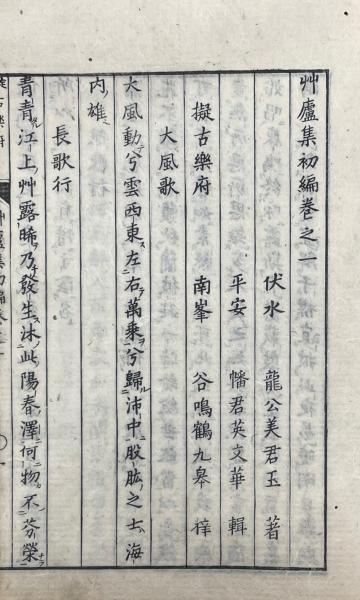 艸廬集初編卷之一
伏水　龍公美君玉　著
平安　幡君英文華　輯
南峯　谷鳴鶴九皋　梓
擬古樂府
大風歌
大風動兮雲西東左右萬乘兮歸沛中股肱之士海
内雄
長歌行
青青江上艸露晞乃發生沐此陽春澤何物不芬榮